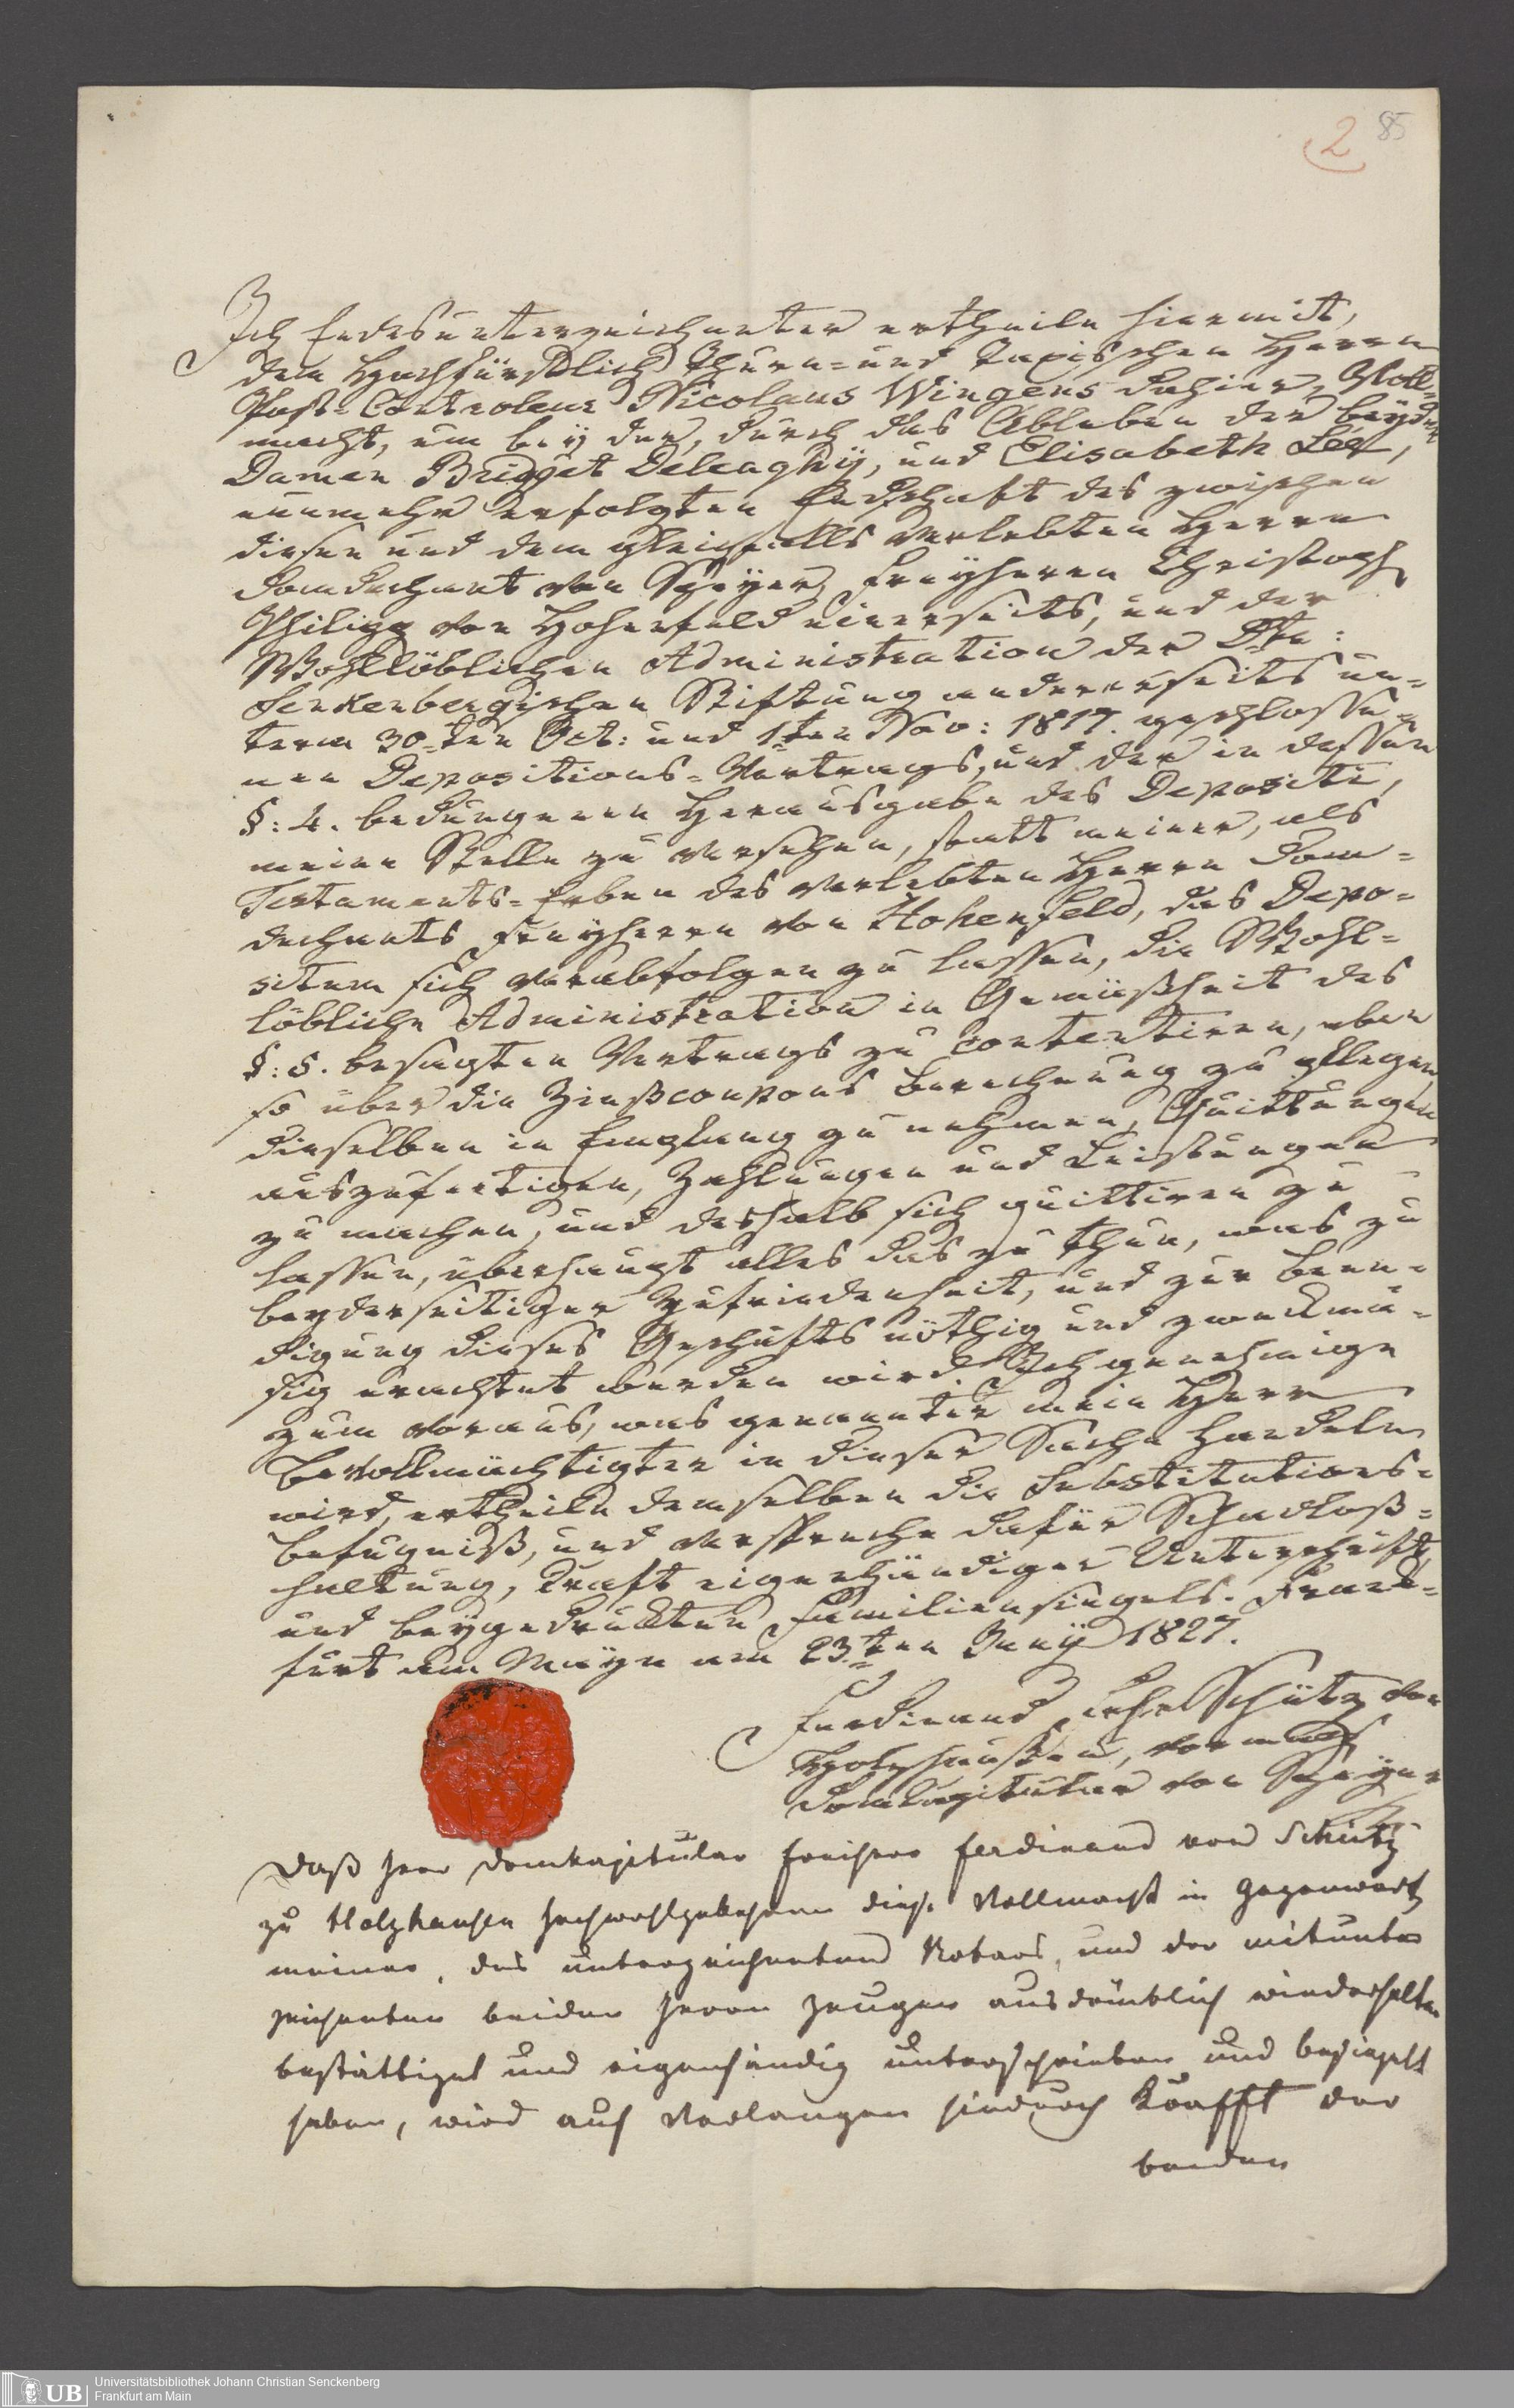 2 85
Ich Endesunterzeichneter ertheile hiermit,
dem Hochfürstlich Thurn- und Taxisschen Herrn
Post-Controleur Nicolaus Wingens dahier, Voll-
macht, um beÿ der, durch das Ableben der beÿden
Damen Bridget Deleaghÿ, und Elisabeth Léÿ,
nunmehr erfolgten Endschaft des zwischen
diesen und dem gleichfalls verlebten Herrn
Domdechant von Speÿer, Freÿherrn Christoph
Philipp von Hohenfeld einerseits, und der
Wohllöblichen Administration der Dr:
Senkenbergischen Stiftung andererseits un-
term 30-ten Oct: und 1ten Nov: 1817. geschlosse-
nen Depositions-Vertrags, und der in dessen
§: 4. bedungenen Herausgabe des Depositi,
meine Stelle zu versehen, statt meiner, als
Testaments-Erben des verlebten Herrn Dom-
dechants Freÿherrn von Hohenfeld, das Depo-
situm sich verabfolgen zu lassen, die Wohl-
löbliche Administration in Gemäßheit des
§: 5. besagten Vertrags zu contentiren, eben
so über die Zinßcoupons Berechnung zu pflegen,
dieselben in Empfang zu nehmen, Quittungen
auszufertigen, Zahlungen und Leistungen
zu machen, und deshalb sich quittiren zu
lassen, überhaupt alles das zu thun, was zu
beyderseitiger Zufriedenheit, und zur Been-
digung dieses Geschäfts nöthig und zweckmä-
sig erachtet werden wird. Ich genehmige
zum voraus, was genannter mein Herr
Bevollmächtigter in dieser Sache handeln
wird, ertheile demselben die Substitutions-
befugniß, und verspreche dafür Schadloß-
haltung, Kraft eigenhändiger Unterschrift,
und beygedruckten Familiensiegels. Frank-
furt am Mayn am 23.ten Junÿ 1827.
Ferdinand Schütz von
Holzhausen, vormals
Domkapitular von Speÿer
Daß Herr Domkapitular Freiherr Ferdinand von Schütz
zu Holzhausen hochwohlgebohren diese Vollmacht in Gegenwart
meiner, des unterzeichneten Notars, und der mitunter
zeichneten beiden Herrn Zeugen ausdrücklich wiederholter
bestättiget und eigenhändig unterschrieben und besiegelt
haben, wird auf Verlangen hiedurch Krafft der
beiden
UB Universitätsbibliothek Johann Christian Senckenberg
Frankfurt am Main